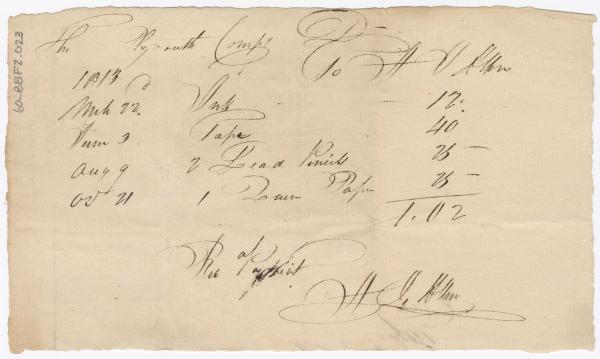 60-BBF2.023
The Plymouth Compy To H J Allen
1813
Mch 22d Ink 12.
June 3 Tape 40
Aug 9 2 Lead Pencils 25
Oct 21 1 Paper 25
1.02
Rec of
H J. Allen